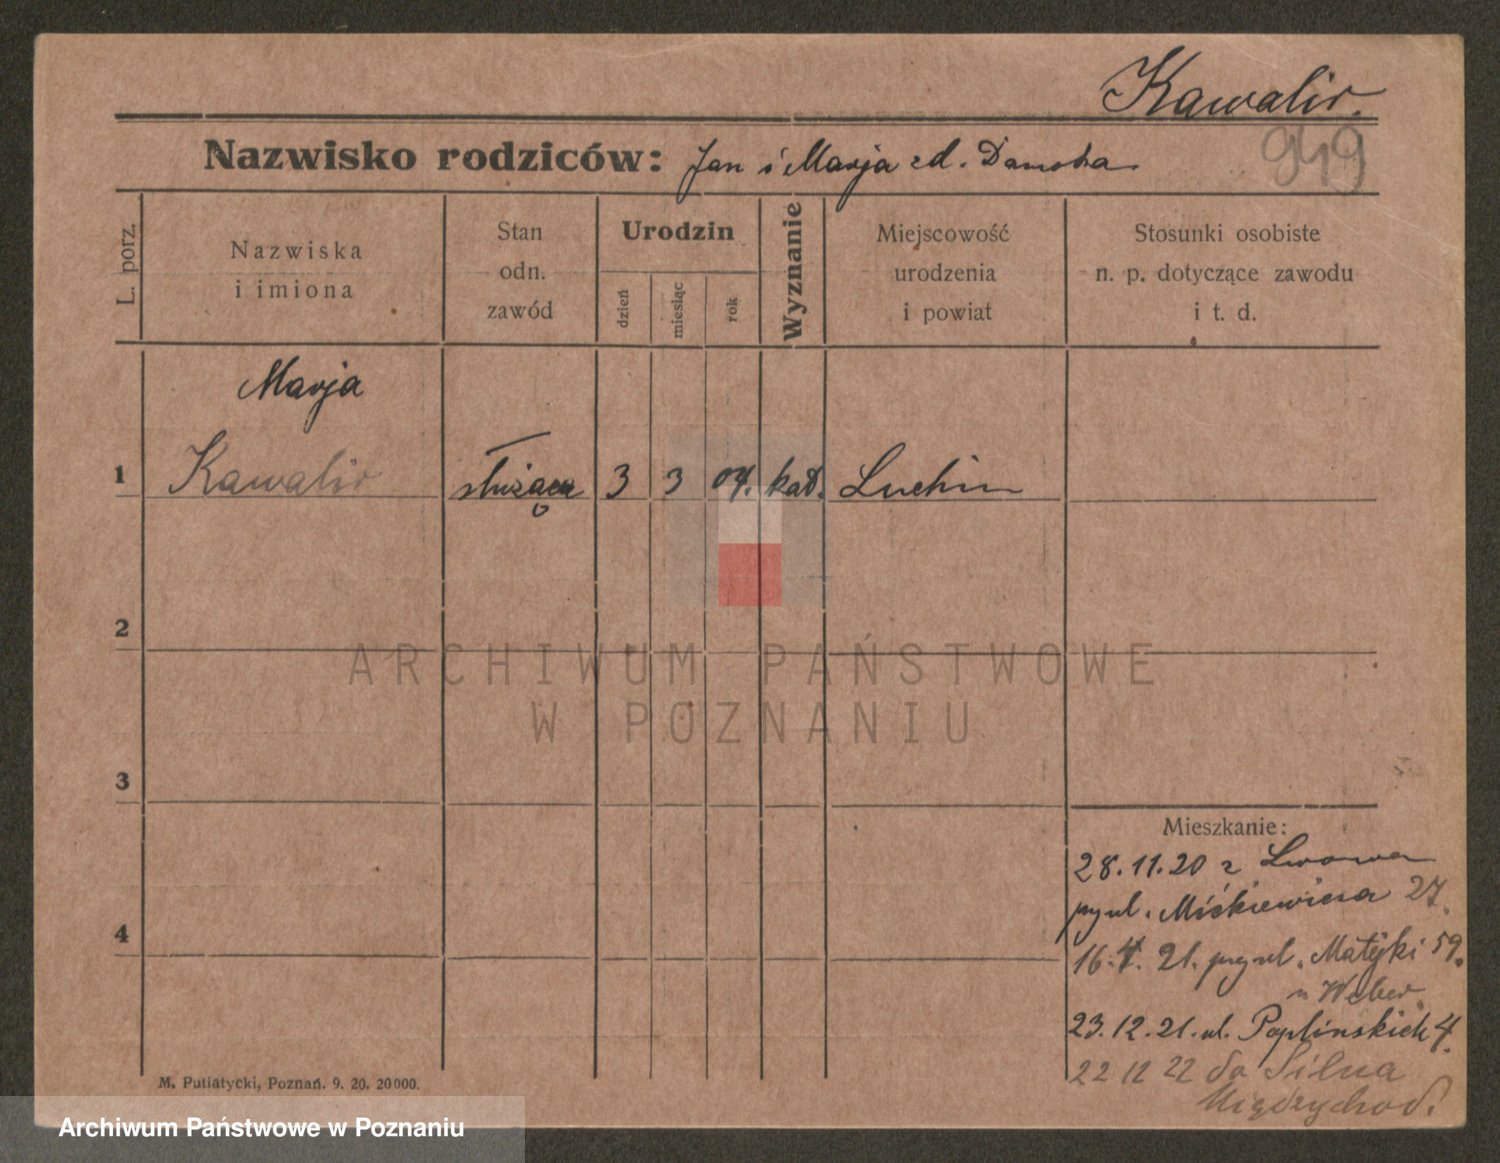 Kawalir.
949
Nazwisko rodziców: Jan i Marja zd. Damska
L. porz.
Nazwiska
i imiona
Stan
odn.
zawód
Urodzin
dzień
miesiąc
rok
Wyznanie
Miejscowość
urodzenia
i powiat
Stosunki osobiste
n. p. dotyczące zawodu
i t. d.
Marja
1 Kawalir służąca 3 3 04. kat. Luchin
2
ARCHIWUM PAŃSTWOWE
W POZNANIU
3
Mieszkanie:
28.11.20 z Lwowa
przy ul. Mickiewicza 27.
4
16.4.21. przy ul. Matejki 59.
u Weber.
23.12.21. ul. Poplinskich 4.
22 12 22 do Silna
Międzychod.
M. Putiatycki, Poznań. 9. 20. 20000.
Archiwum Państwowe w Poznaniu